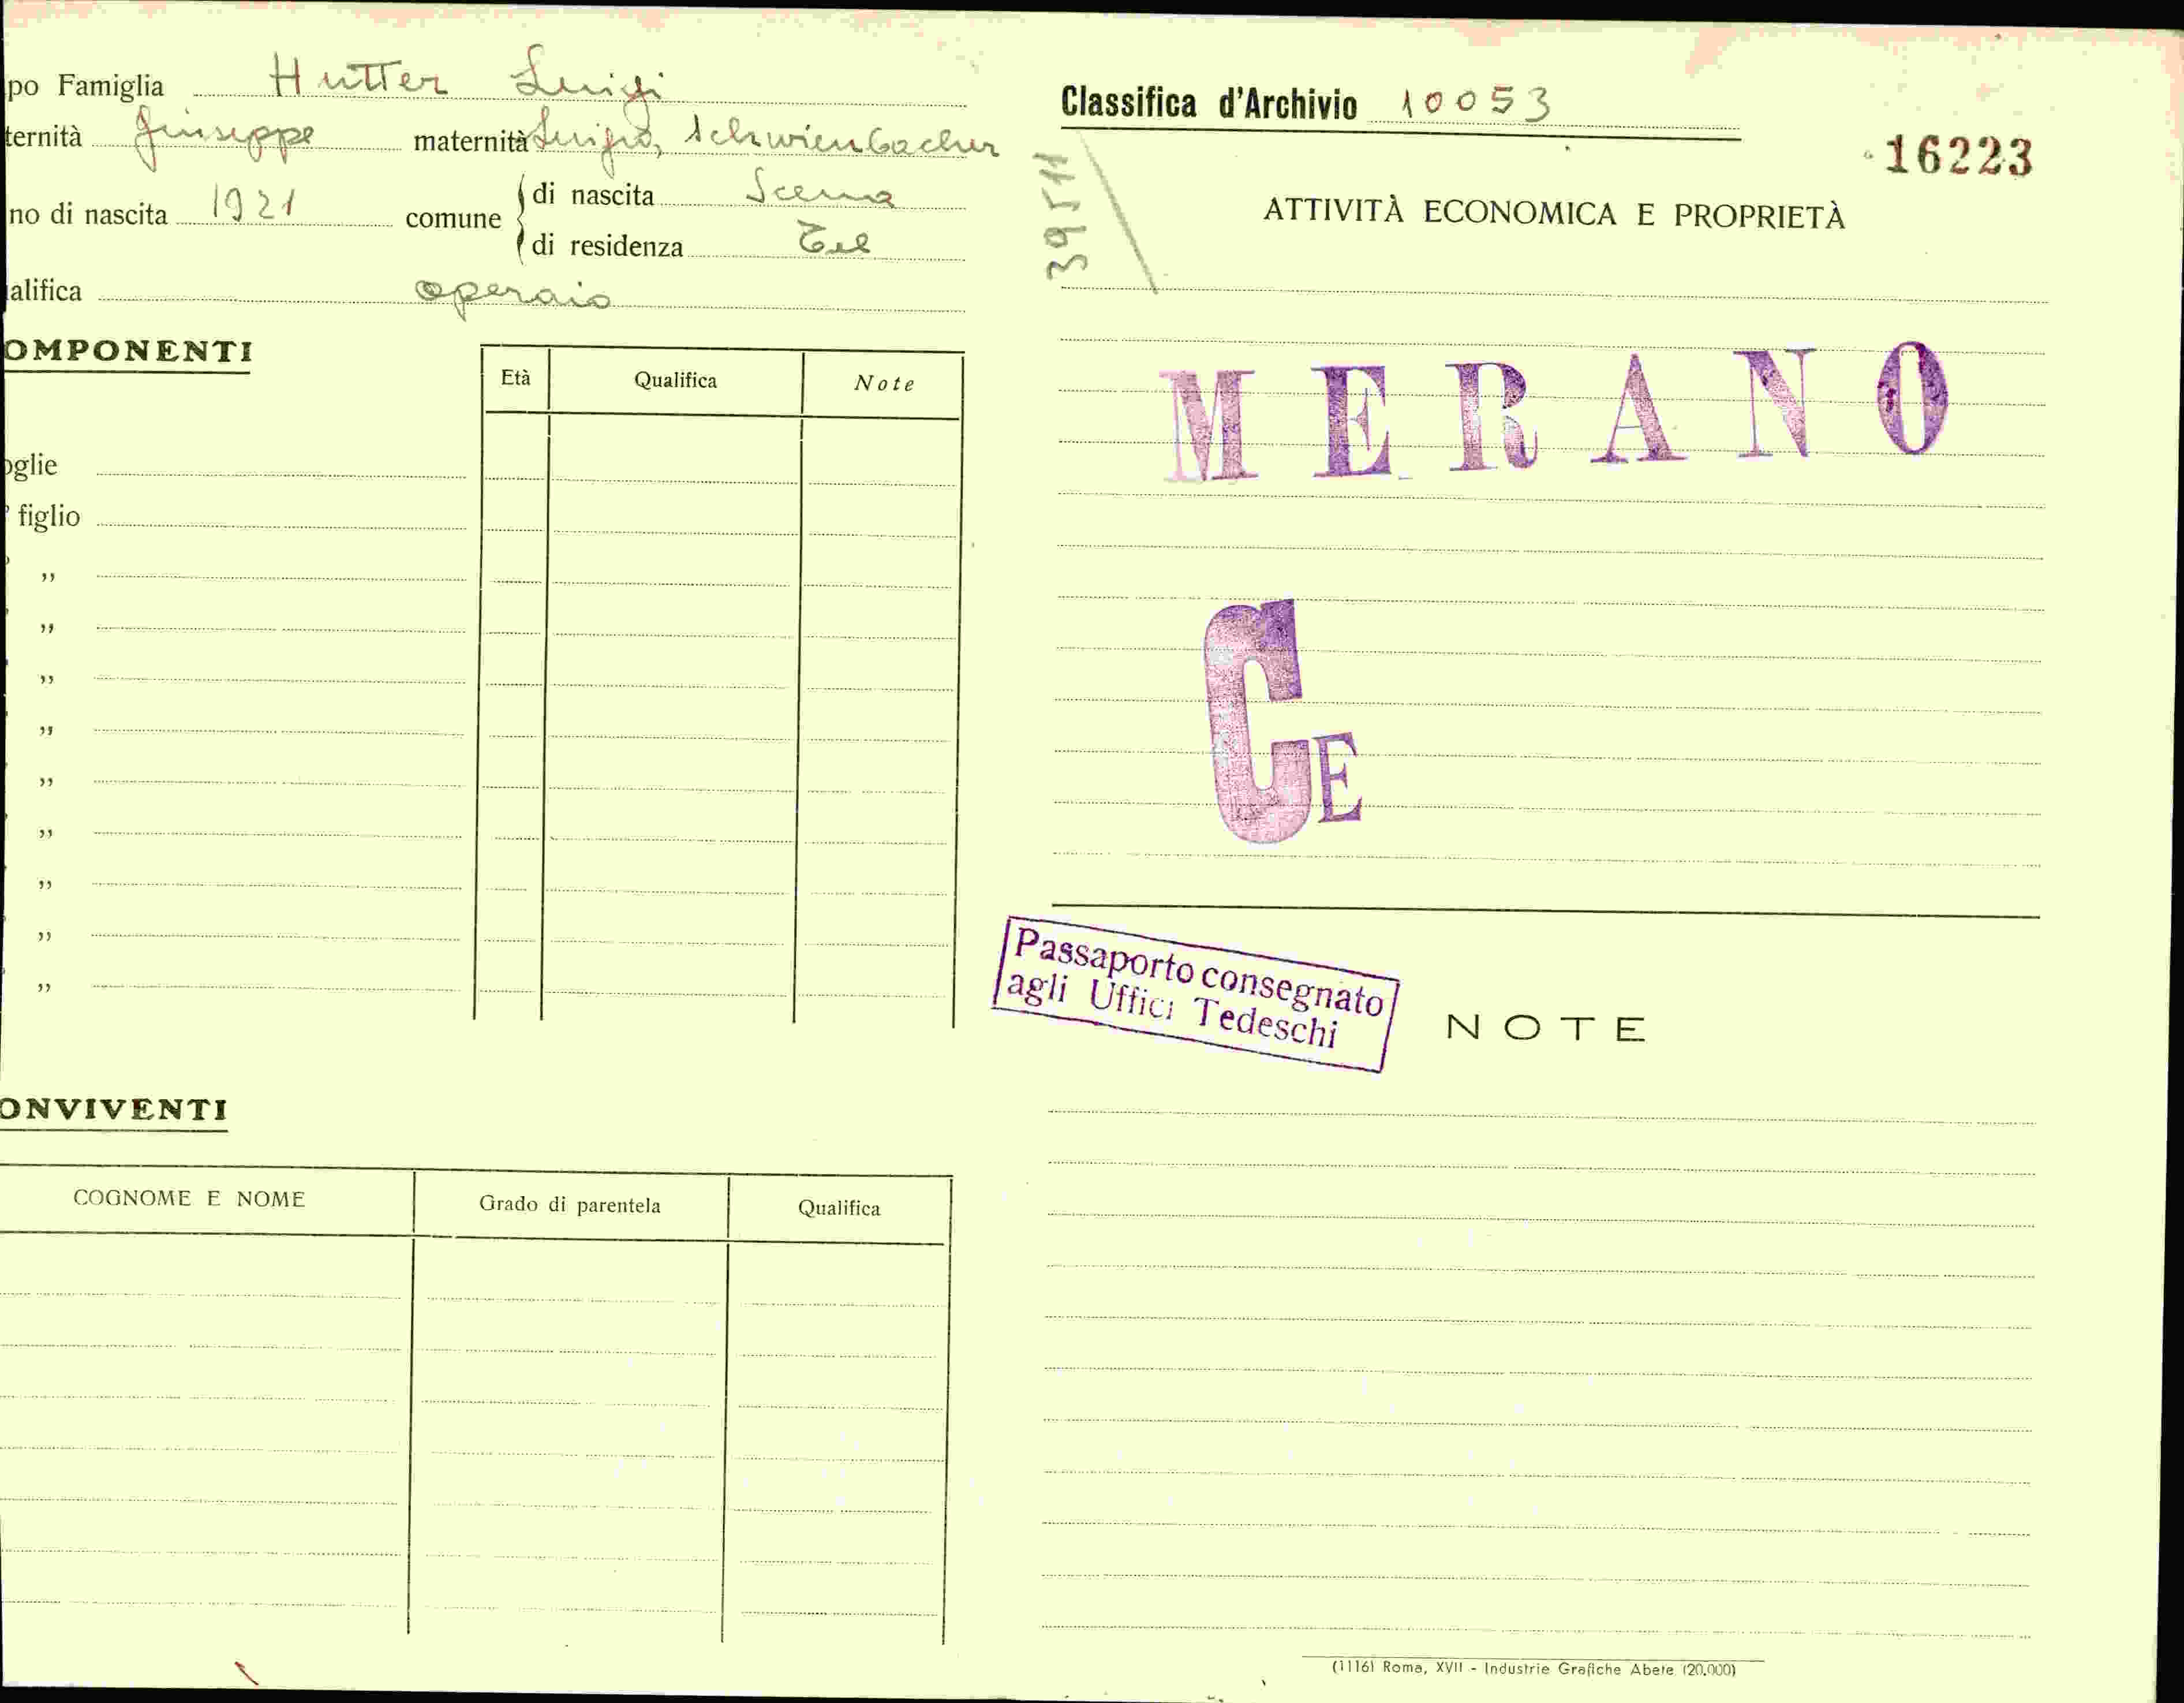 po Famiglia Hutter Luigi
ternità Giuseppe maternità Luigia Schwienbacher
no di nascita 1921 comune di nascita Scena
di residenza Tel
alifica operaio
OMPONENTI
Età Qualifica Note
oglie
figlio
"
"
"
"
"
"
"
"
"
ONVIVENTI
COGNOME E NOME Grado di parentela Qualifica
Classifica d'Archivio 10053
16223
39511
ATTIVITÀ ECONOMICA E PROPRIETÀ
MERANO
CE
Passaporto consegnato
agli Uffici Tedeschi
NOTE
(1116) Roma, XVII - Industrie Grafiche Abete (20.000)